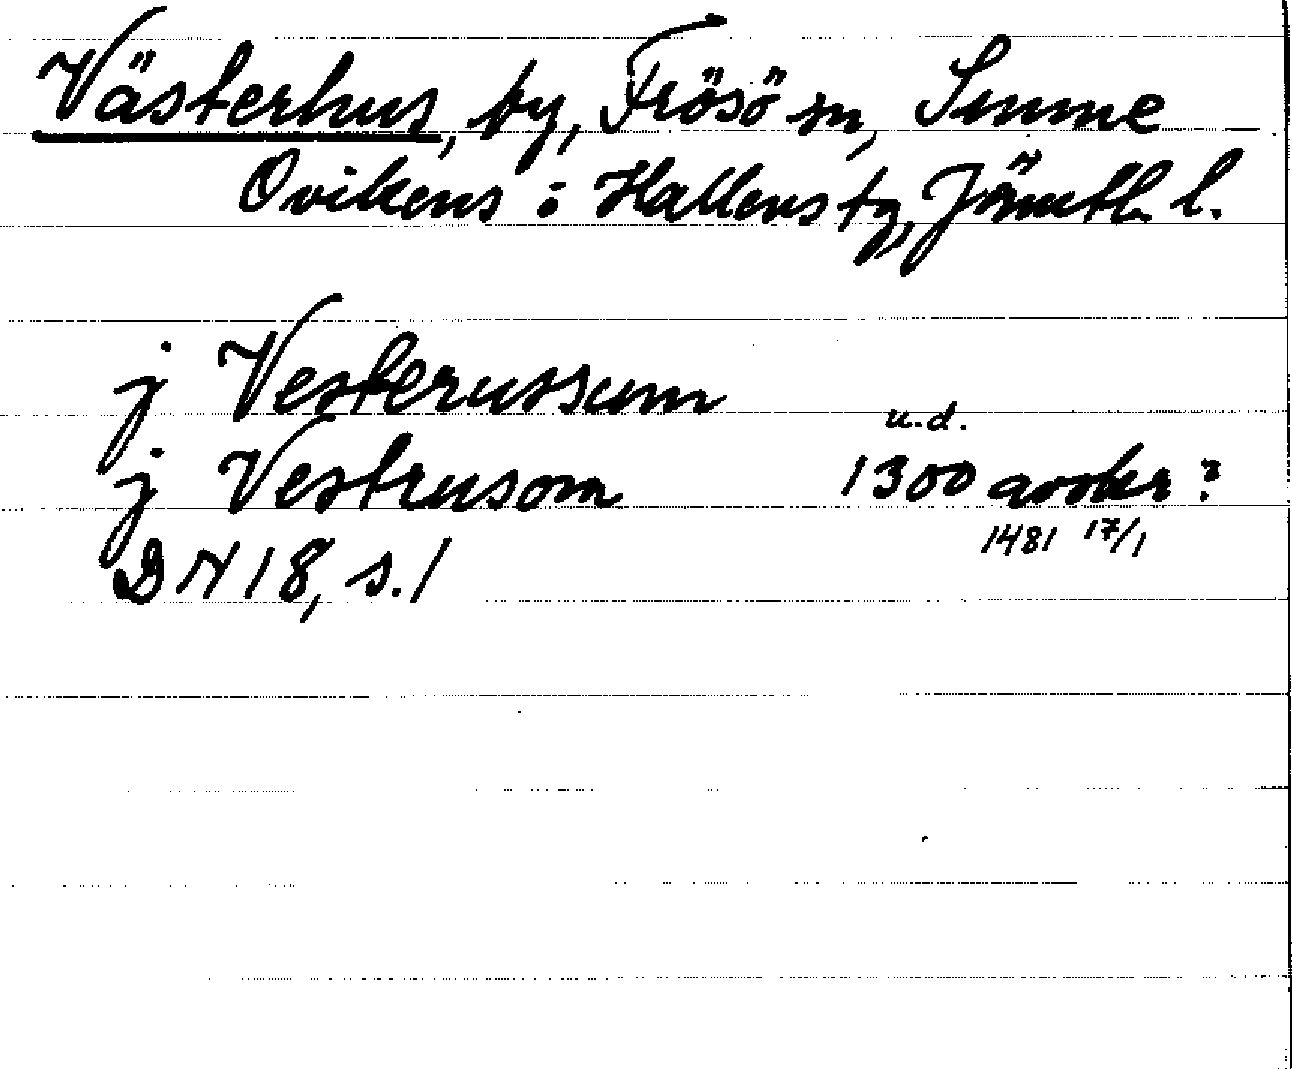 Västerhus, by, Frösö sn, Sunne
Ovikens o Hallens tg, Jämtl. l.
j Vesterussum
u.d.
j Vestrusom 1300 avskr ?
1481 17/1
DN 18, s. 1